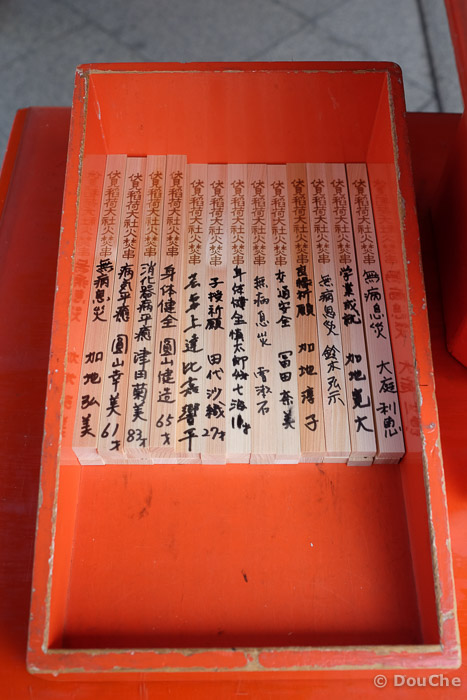 伏見稲荷大社火焚串 無病息災 大庭利惠
伏見稲荷大社火焚串 営業成就 加地寛大
伏見稲荷大社火焚串 無病息災 鈴木弘示
伏見稲荷大社火焚串 良縁祈願 加地清子
伏見稲荷大社火焚串 交通安全 冨田奈美
伏見稲荷大社火焚串 無病息災
伏見稲荷大社火焚串 身体健全
伏見稲荷大社火焚串 子授祈願 田代沙織 27才
伏見稲荷大社火焚串
伏見稲荷大社火焚串 身体健全 圓山健造 65才
伏見稲荷大社火焚串 消化器病平癒 津田菊美 83才
伏見稲荷大社火焚串 病気平癒 圓山幸美 61才
伏見稲荷大社火焚串 無病息災 加地弘美
© DouChe